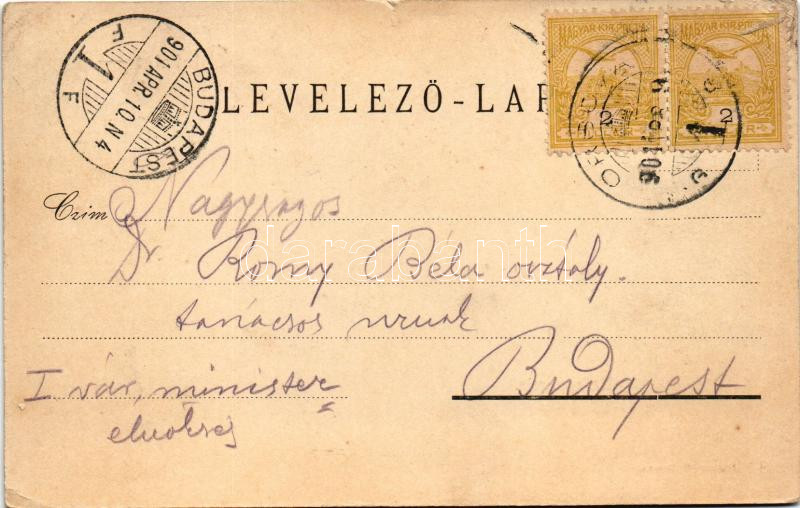 LEVELEZŐ-LAP
MAGYAR KIR. POSTA MAGYAR KIR. POSTA
2 2
BUDAPEST
901 APR. 10. N 4
F 1 F
ORSOVA
901 APR 9
Czim
Nagyságos
Dr. Rómy Béla osztály-
tanácsos urnak
Budapest
I vár, minister-
elnökség
darabanth